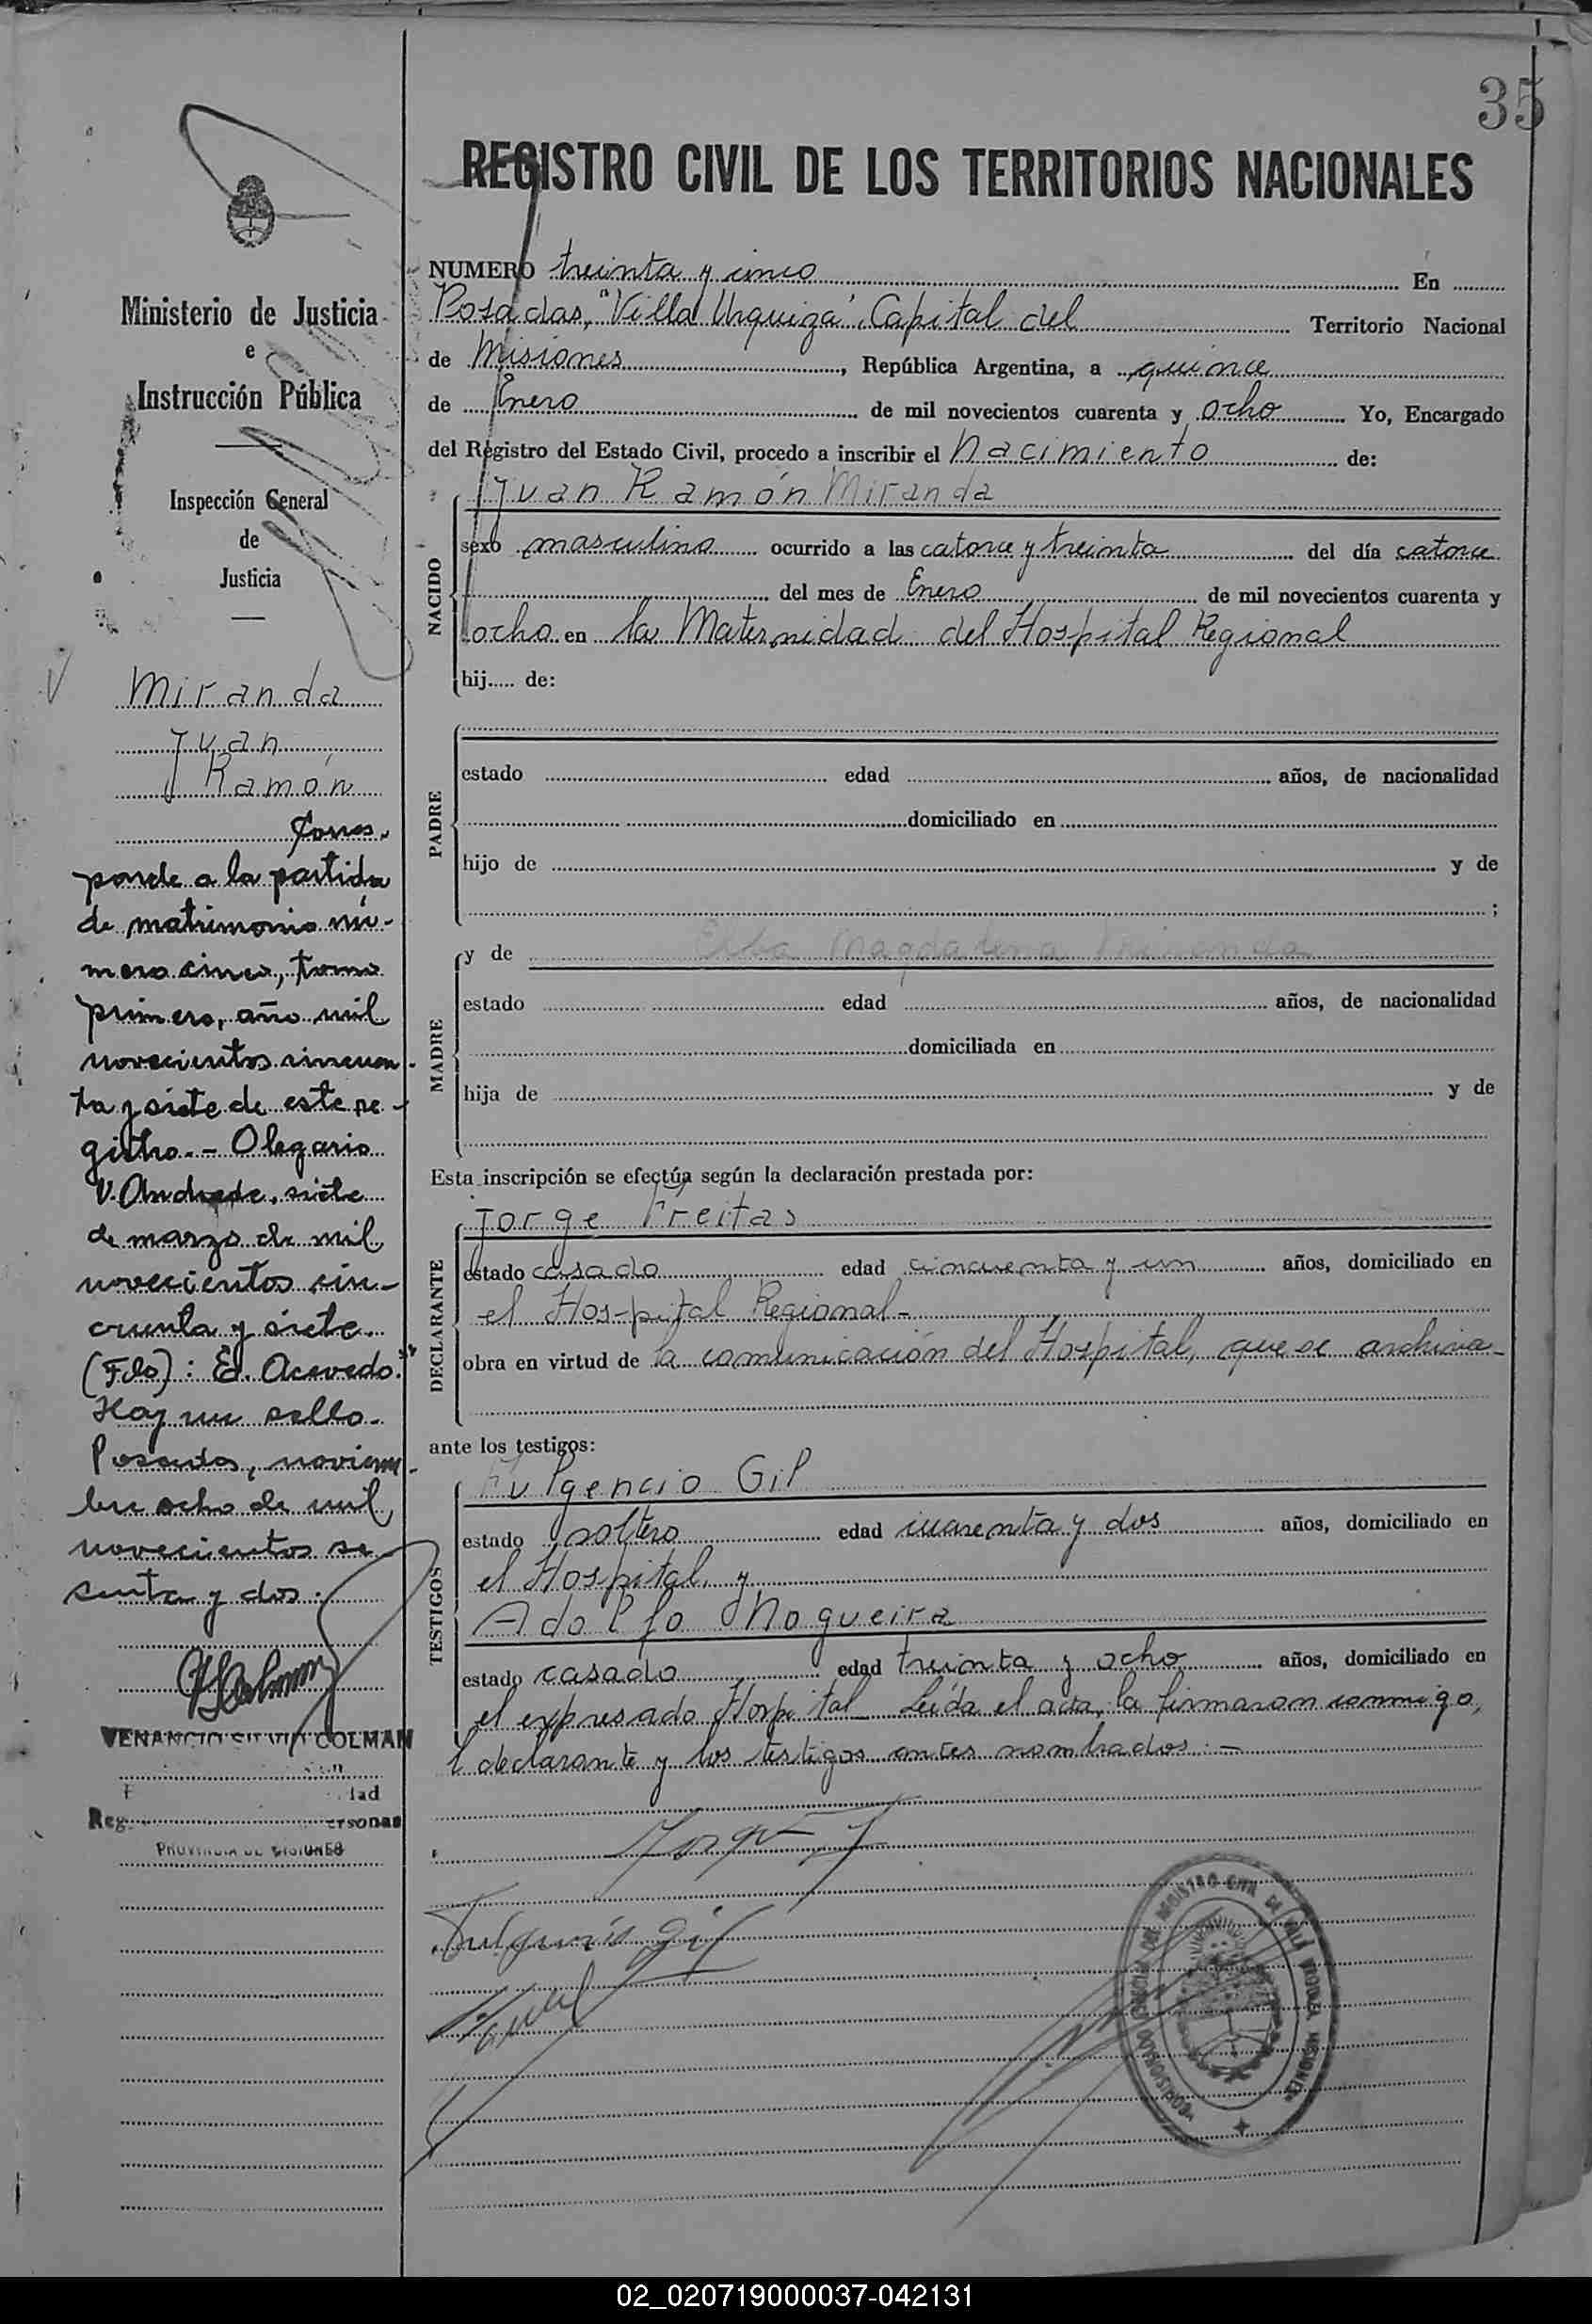 35
REGISTRO CIVIL DE LOS TERRITORIOS NACIONALES
Ministerio de Justicia
e
Instrucción Pública
Inspección General
de
Justicia
Miranda
Juan
Ramón
Corres-
ponde a la partida
de matrimonio nú-
mero cinco, tomo
primero, año mil
novecientos cincuen-
ta y siete de este re-
gistro.- Olegario
V. Andrade, siete
de marzo de mil
novecientos cin-
cuenta y siete.
(Fdo): Ed. Acevedo."
Hay un sello.
Posadas, noviem-
bre ocho de mil
novecientos se-
senta y dos.
VENANCIO SILVIO COLMAN
PROVINCIA DE MISIONES
NUMERO treinta y cinco En
Posadas, "Villa Urquiza", Capital del Territorio Nacional
de Misiones, República Argentina, a quince
de Enero de mil novecientos cuarenta y ocho Yo, Encargado
del Registro del Estado Civil, procedo a inscribir el nacimiento de:
NACIDO
Juan Ramón Miranda
sexo masculino ocurrido a las catorce y treinta del día catorce
del mes de Enero de mil novecientos cuarenta y
ocho en la Maternidad del Hospital Regional
hij..... de:
PADRE
estado edad años, de nacionalidad
domiciliado en
hijo de y de
;
MADRE
y de Elba Magdalena Miranda
estado edad años, de nacionalidad
domiciliada en
hija de y de
Esta inscripción se efectúa según la declaración prestada por:
DECLARANTE
Jorge Freitas
estado casado edad cincuenta y un años, domiciliado en
el Hospital Regional-
obra en virtud de la comunicación del Hospital, que se archiva-
ante los testigos:
TESTIGOS
Fulgencio Gil
estado soltero edad cuarenta y dos años, domiciliado en
el Hospital, y
Adolfo Nogueira
estado casado edad treinta y ocho años, domiciliado en
el expresado Hospital- Leída el acta, la firmaron conmigo,
l declarante y los testigos antes nombrados.-
Fulgencio Gil
02_020719000037-042131